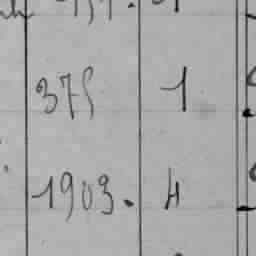 375 1
1903. 4